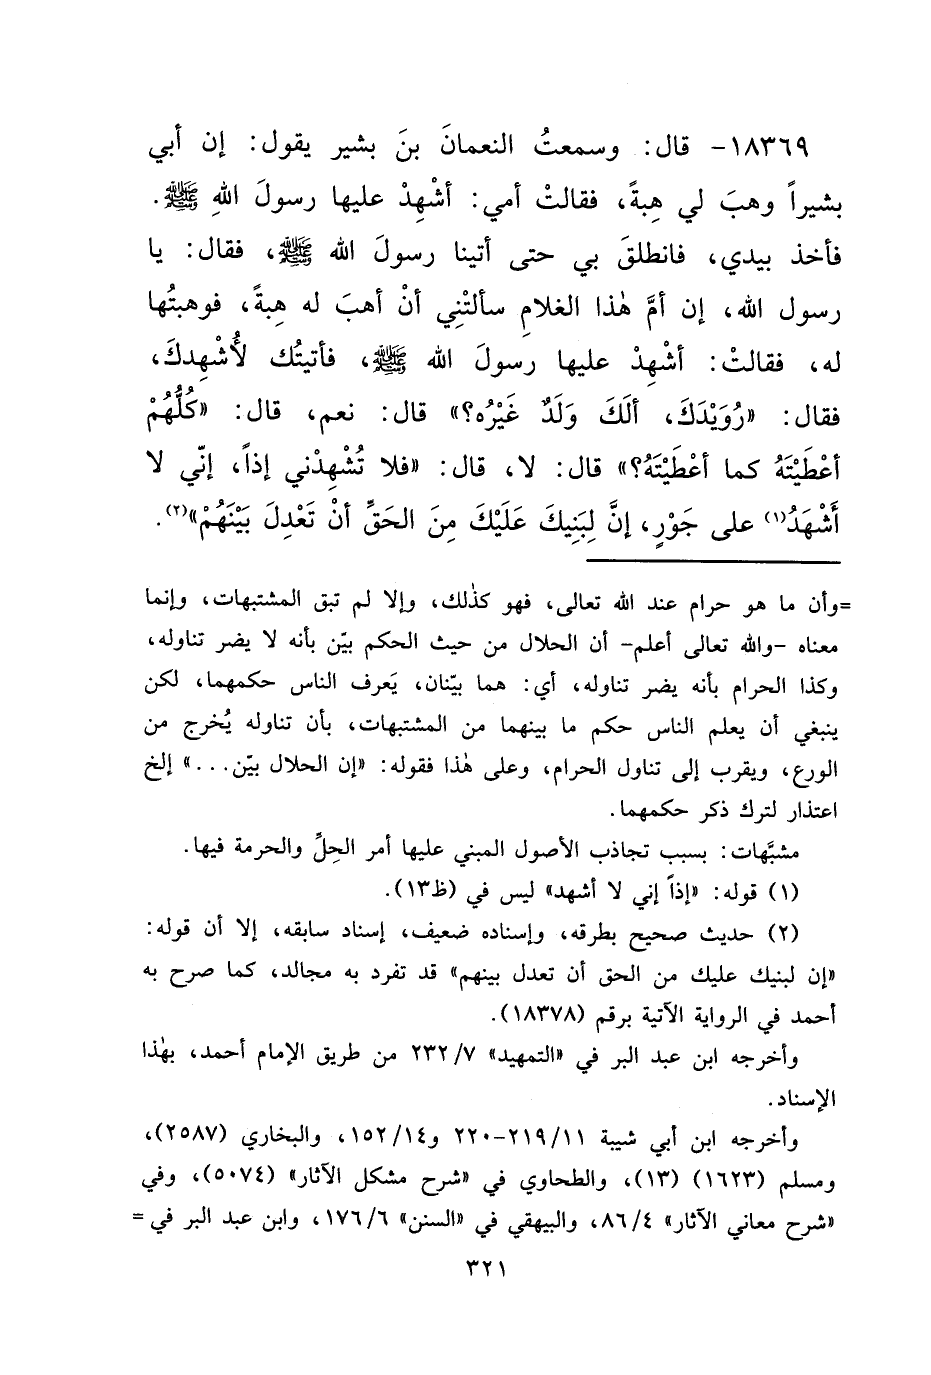 ١٨٣٦٩- قال: وسمعتُ النعمانَ بنَ بشير يقول: إن أبي
بشيراً وهبَ لي هِبةً، فقالتْ أمي: أشْهِدْ عليها رسولَ اللهِ ﷺ.
فأخذ بيدي، فانطلقَ بي حتى أتينا رسولَ الله ﷺ، فقال: يا
رسول الله، إن أمَّ هٰذا الغلامِ سألتْنِي أنْ أهبَ له هِبةً، فوهبتُها
له، فقالتْ: أشْهِدْ عليها رسولَ الله ﷺ، فأتيتُك لُأشْهِدكَ،
فقال: «رُوَيْدَكَ، ألَكَ وَلَدٌ غَيْرُه؟» قال: نعم، قال: «كُلُّهُمْ
أعْطَيْتَهُ كما أعْطَيْتَهُ؟» قال: لا، قال: «فلا تُشْهِدْني إذاً، إنّي لا
أَشْهَدُ(١) على جَوْرٍ، إنَّ لِبَنِيكَ عَلَيْكَ مِنَ الحَقِّ أنْ تَعْدِلَ بَيْنَهُمْ»(٢).
=وأن ما هو حرام عند الله تعالى، فهو كذٰلك، وإلا لم تبق المشتبهات، وإنما
معناه -والله تعالى أعلم- أن الحلال من حيث الحكم بيّن بأنه لا يضر تناوله،
وكذا الحرام بأنه يضر تناوله، أي: هما بيّنان، يَعرف الناس حكمهما، لكن
ينبغي أن يعلم الناس حكم ما بينهما من المشتبهات، بأن تناوله يُخرج من
الورع، ويقرب إلى تناول الحرام، وعلى هٰذا فقوله: «إن الحلال بيّن...» إلخ
اعتذار لترك ذكر حكمهما.
مشبَّهات: بسبب تجاذب الأصول المبني عليها أمر الحِلِّ والحرمة فيها.
(١) قوله: «إذاً إني لا أشهد» ليس في (ظ١٣).
(٢) حديث صحيح بطرقه، وإسناده ضعيف، إسناد سابقه، إلا أن قوله:
«إن لبنيك عليك من الحق أن تعدل بينهم» قد تفرد به مجالد، كما صرح به
أحمد في الرواية الآتية برقم (١٨٣٧٨).
وأخرجه ابن عبد البر في «التمهيد» ٢٣٢/٧ من طريق الإمام أحمد، بهٰذا
الإسناد.
وأخرجه ابن أبي شيبة ٢١٩/١١-٢٢٠ و١٥٢/١٤، والبخاري (٢٥٨٧)،
ومسلم (١٦٢٣) (١٣)، والطحاوي في «شرح مشكل الآثار» (٥٠٧٤)، وفي
«شرح معاني الآثار» ٨٦/٤، والبيهقي في «السنن» ١٧٦/٦، وابن عبد البر في=
٣٢١